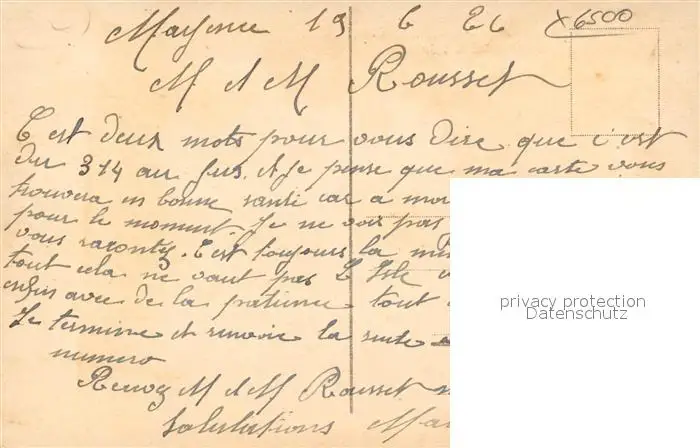 Mayence 19 6 26 x 6500
M et M Rousset
C est deux mots pour vous dire que c'est
du 314 au jus. et je pense que ma carte vous
trouvera en bonne santé car a mo
pour le moment. Je ne vois pas
vous raconter. C'est toujours la
tout cela ne vaut pas L Isle
enfin avec de la patience tout
Je termine et renvoie la suite
numero
Recevez M et M Rousset
Salutations Ma
privacy protection
Datenschutz